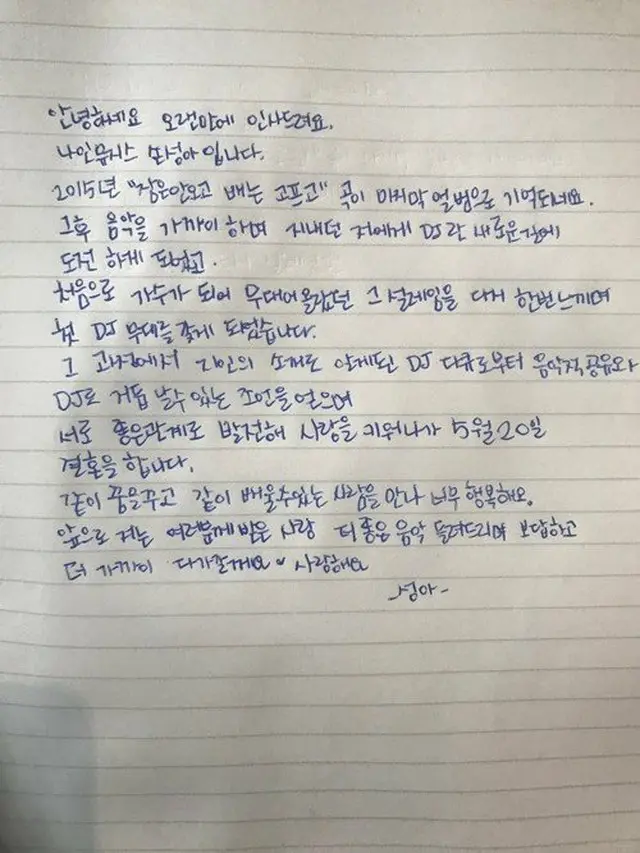 안녕하세요 오랜만에 인사드려요.
나인뮤지스 쏘성아 입니다.
2015년 "잠은안오고 배는 고프고" 곡이 마지막 앨범으로 기억되네요.
그후 음악을 가까이 하며 지내던 저에게 DJ란 새로운길에
도전 하게 되었고.
처음으로 가수가 되어 무대에올랐던 그 설레임을 다시 한번느끼며
첫 DJ 무대를 갖게 되었습니다.
그 과정에서 지인의 소개로 알게된 DJ 다큐로부터 음악적공유와
DJ로 거듭 날수있는 조언을얻으며
서로 좋은관계로 발전해 사랑을 키워나가 5월20일
결혼을 합니다.
같이 꿈을꾸고 같이 배울수있는 사람을 만나 너무 행복해요.
앞으로 저는 여러분께 받은 사랑 더 좋은 음악 들려드리며 보답하고
더 가까이 다가갈게요 사랑해요
-성아-